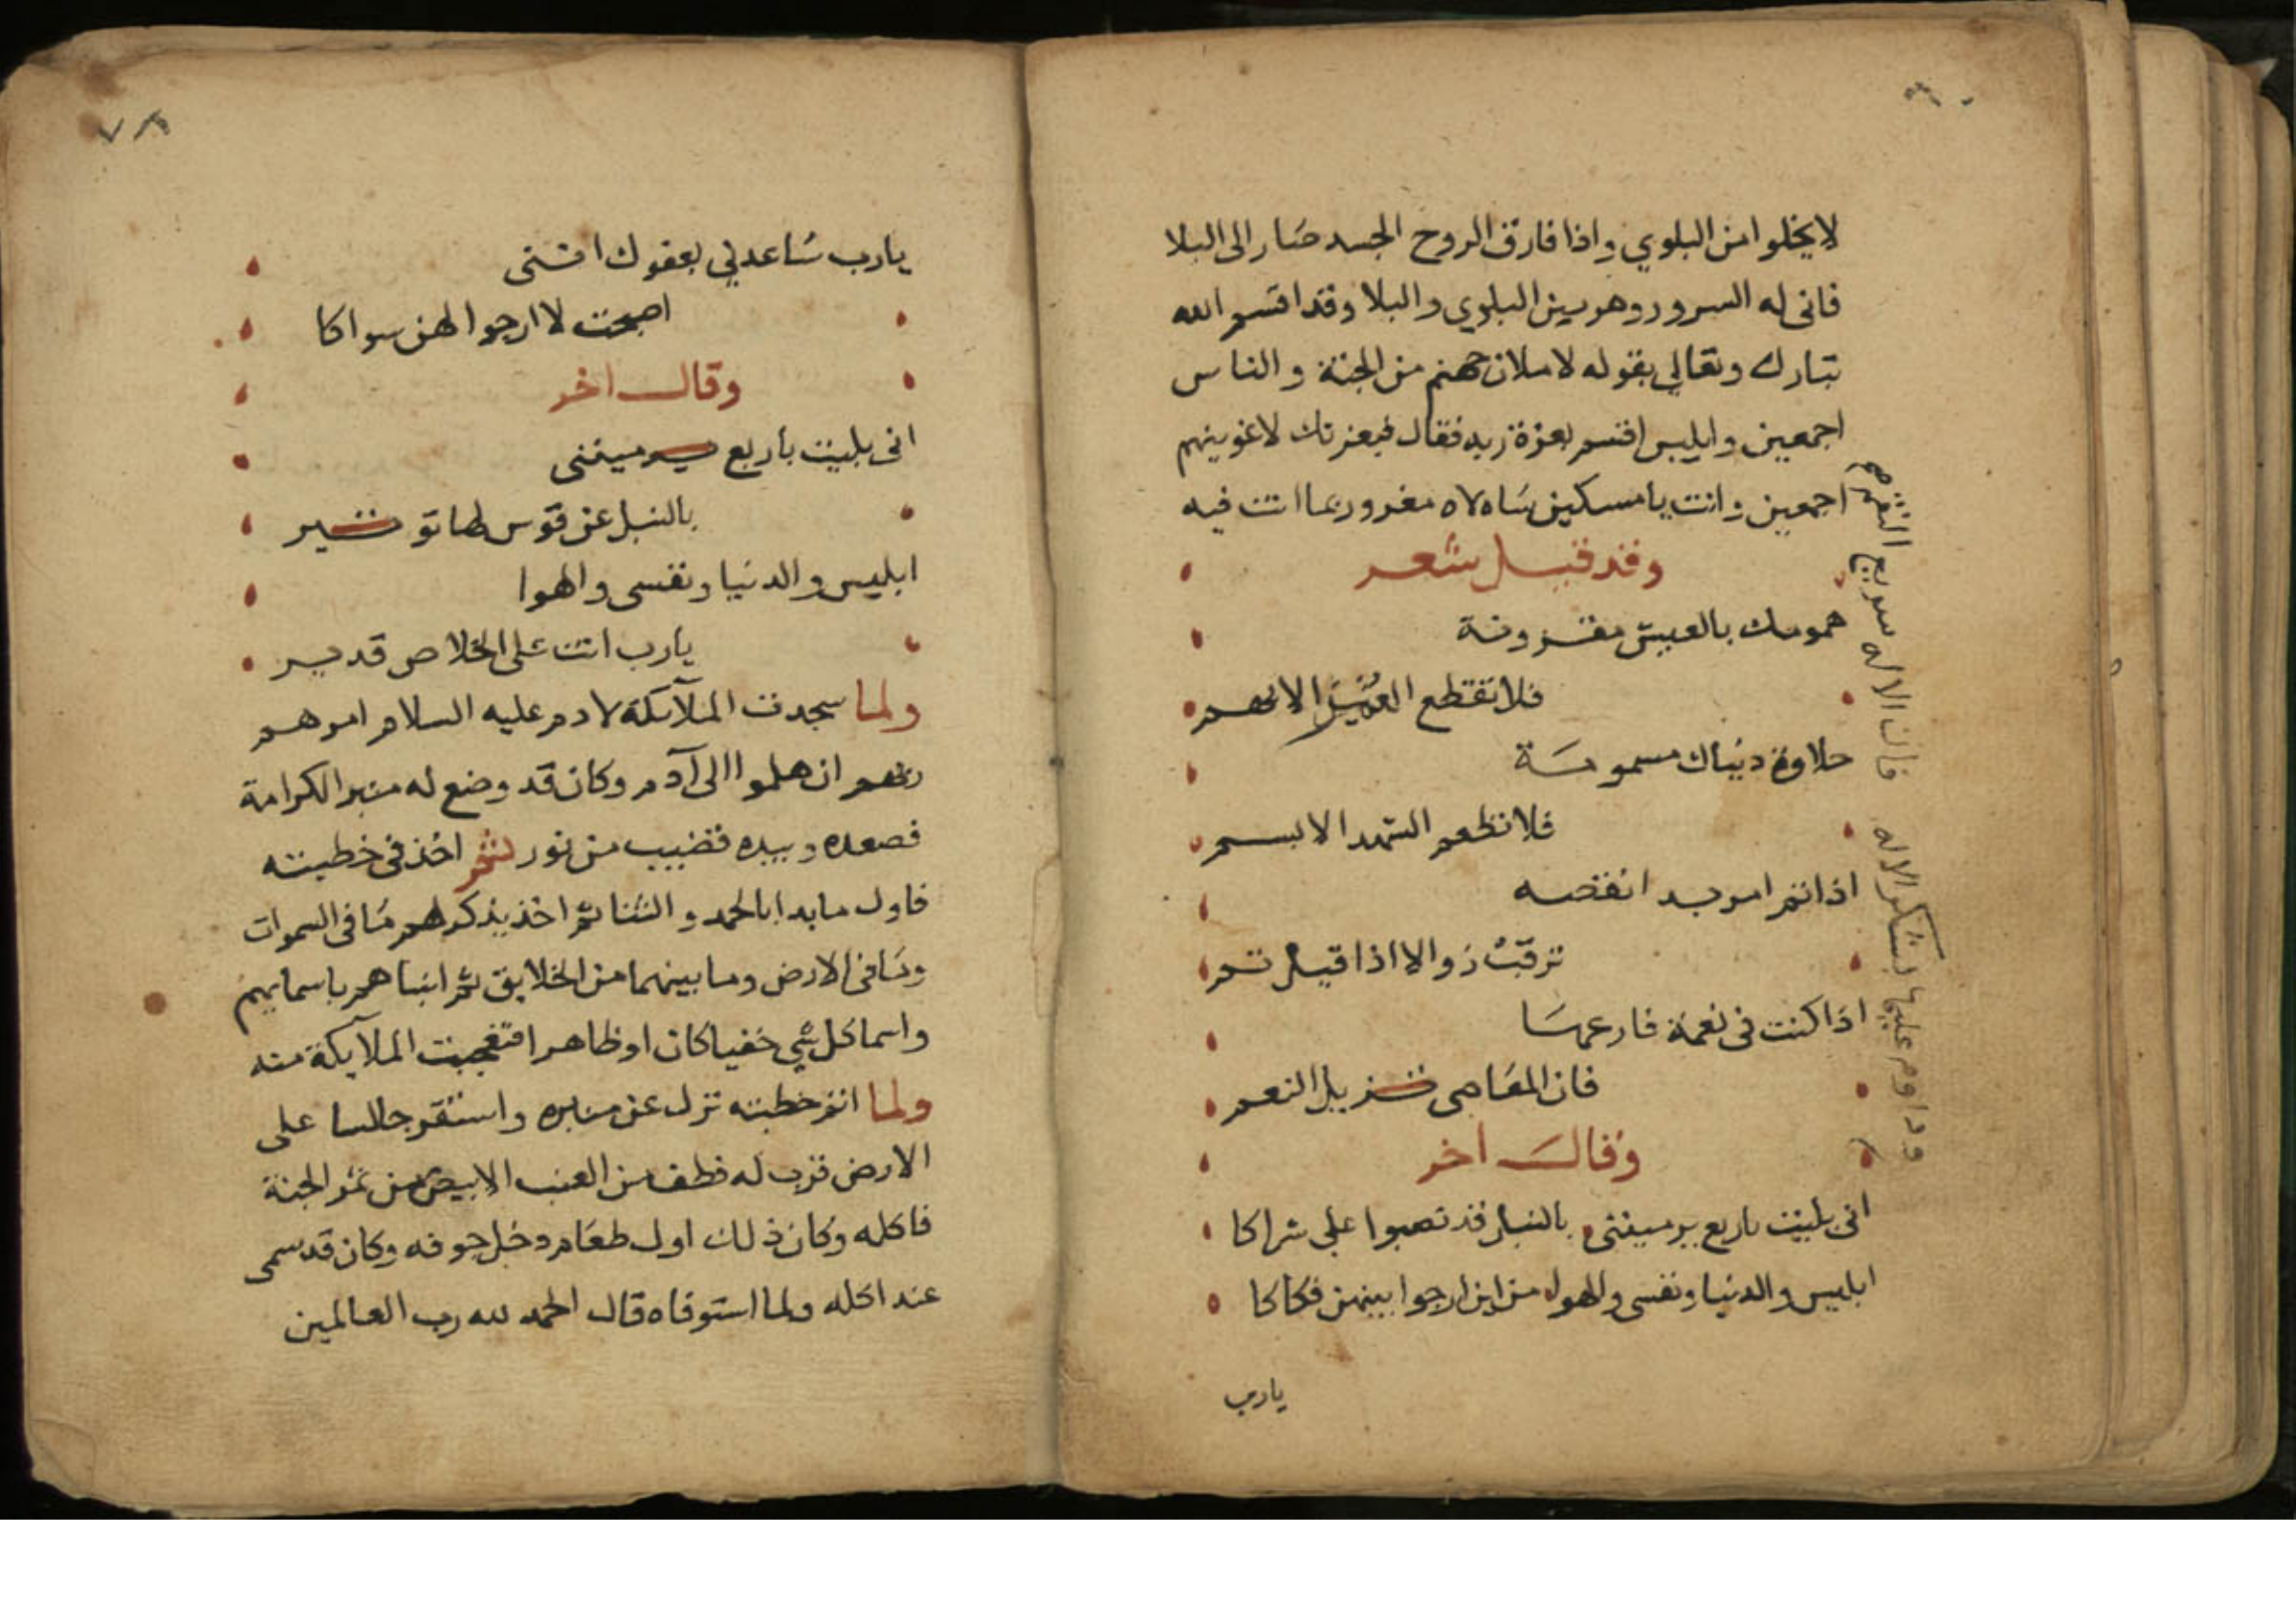 لا يخلوا من البلوي واذا فارق الروح الجسد صار الى البلا
فانى له السرور وهو بين البلوي والبلا وقد اقسم الله
تبارك وتعالي بقوله لاملان جهنم من الجنة والناس
اجمعين وابليس اقسم بعزة ربه فقال فبعزتك لاغوينهم
اجمعين وانت يا مسكين ساه لاه مغرور بما انت فيه
وقد قيل شعر
همومك بالعيش مقرونة
فلا تقطع العيش الا بهم
حلاوة دنياك مسمومة
فلا تطعم الشهد الا بسم
اذا تم امر بدا نقصه
ترقب زوالا اذا قيل تم
اذا كنت فى نعمة فارعها
فان المعاصى تزيل النعم
وداوم عليها بشكر الاله فان الاله سريع النقم
وقال اخر
انى بليت باربع يرمينني بالنبل قد نصبوا علي شراكا
ابليس والدنيا ونفسى والهوا من اين ارجوا بينهن فكاكا
يارب
٧٨
يارب ساعدني بعفوك انني
اصبحت لا ارجوا لهن سواكا
وقال اخر
انى بليت بأربع يرمينني
بالنبل عن قوس لها توتير
ابليس والدنيا ونفسى والهوا
يارب انت على الخلاص قدير
ولما سجدت الملآئكة لادم عليه السلام امرهم
ربهم ان هلموا الى آدم وكان قد وضع له منبر الكرامة
فصعده وبيده قضيب من نور ثم اخذ فى خطبته
فاول ما بدا بالحمد والثنا ثم اخذ يذكر لهم ما فى السموات
وما فى الارض وما بينهما من الخلايق ثم انباهم باسمايهم
واسما كل شي خفيا كان او ظاهرا فتعجبت الملآيكة منه
ولما اتم خطبته نزل عن منبره واستقر جالسا على
الارض قرب له قطف من العنب الابيض من ثمر الجنة
فاكله وكان ذلك اول طعام دخل جوفه وكان قد سمى
عند اكله ولما استوفاه قال الحمد لله رب العالمين